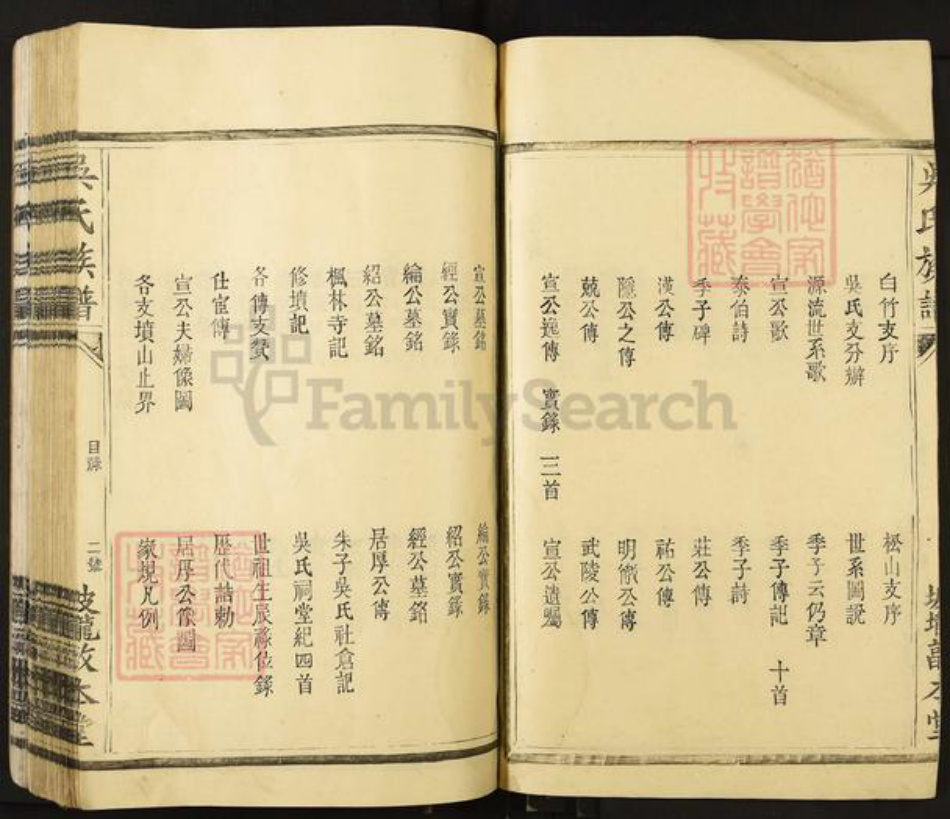 白竹支序
松山支序
吳氏支分辦
世系圖說
源流世系歌
季子云仍章
宣公歌
季子傳記 十首
泰伯詩
季子詩
季子碑
莊公傳
漢公傳
祐公傳
隱公之傳
明儆公傳
兢公傳
武陵公傳
宣公逸傳 實錄 三首
宣公遺囑
宣公墓銘
綸公實錄
經公實錄
紹公實錄
綸公墓銘
經公墓銘
紹公墓銘
居厚公傳
楓林寺記
朱子吳氏社倉記
修墳記
吳氏祠堂紀四首
各傳支贊
世祖生辰祿位錄
仕宦傳
歷代誥勅
宣公夫婦像圖
居厚公像圖
各支墳山止界
家規凡例
吳氏族譜
目錄
二號
坡壠敦本堂
FamilySearch